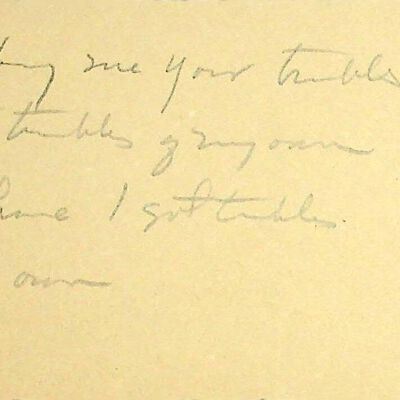 me your trubles
trubles of my own
I got trubles
own